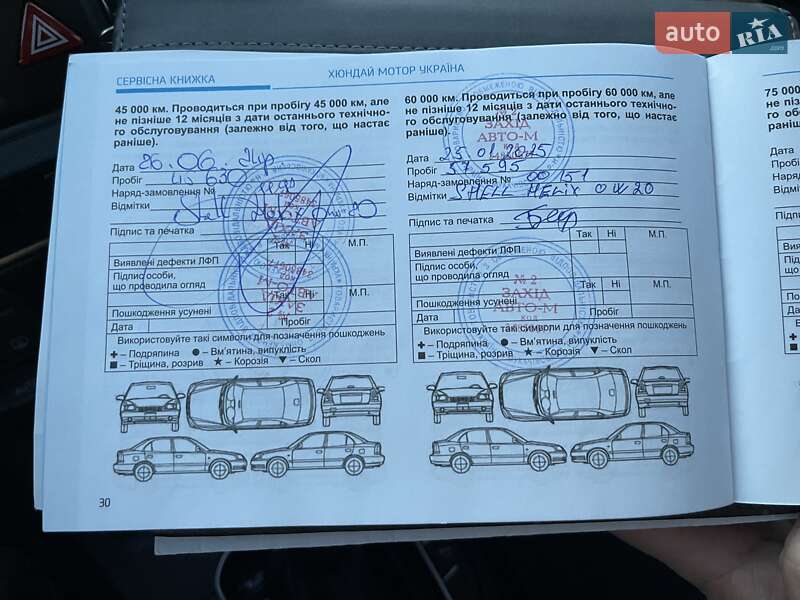 auto RIA
.com
СЕРВІСНА КНИЖКА
ХЮНДАЙ МОТОР УКРАЇНА
45 000 км. Проводиться при пробігу 45 000 км, але
не пізніше 12 місяців з дати останнього технічно-
го обслуговування (залежно від того, що настає
раніше).
Дата 26.06.
Пробіг
Наряд-замовлення №
Відмітки Shell Helix
Підпис та печатка
Так Ні М.П.
Виявлені дефекти ЛФП
Підпис особи,
що проводила огляд
Так Ні М.П.
Пошкодження усунені
Дата Пробіг
Використовуйте такі символи для позначення пошкоджень
– Подряпина – Вм'ятина, випуклість
– Тріщина, розрив – Корозія – Скол
30
60 000 км. Проводиться при пробігу 60 000 км, але
не пізніше 12 місяців з дати останнього технічно-
го обслуговування (залежно від того, що настає
раніше).
Дата 25 01 2025
Пробіг 57 595
Наряд-замовлення № 00151
Відмітки SHELL HELIX 0W20
Підпис та печатка
ЗАХІД
АВТО-М
Так Ні М.П.
Виявлені дефекти ЛФП
Підпис особи,
що проводила огляд
Так Ні М.П.
Пошкодження усунені
Дата Пробіг
№ 2
ЗАХІД
АВТО-М
КОД
Використовуйте такі символи для позначення пошкоджень
– Подряпина – Вм'ятина, випуклість
– Тріщина, розрив – Корозія – Скол
75 000
не пізн
го обсл
раніше
Дата
Пробіг
Наряд-
Відмітк
Підпис
Виявле
Підпис
що про
Пошко
Дата
Вик